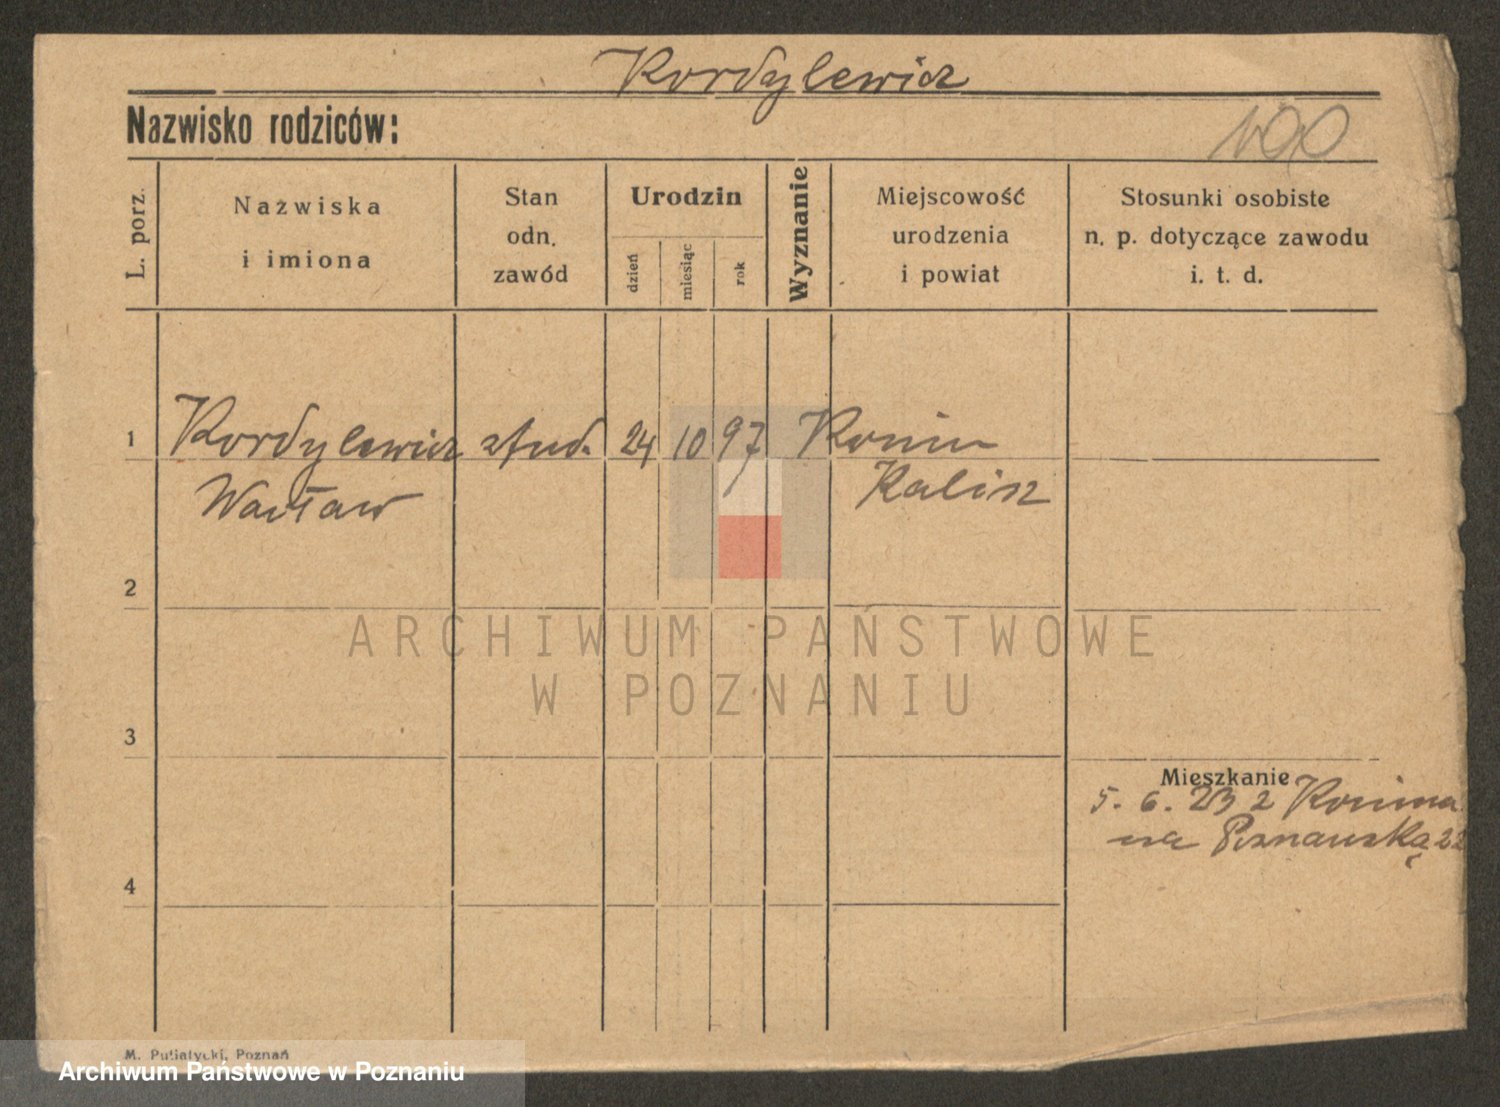 Kordylewicz
Nazwisko rodziców:
100
L. porz.
Nazwiska
i imiona
Stan
odn.
zawód
Urodzin
dzień
miesiąc
rok
Wyznanie
Miejscowość
urodzenia
i powiat
Stosunki osobiste
n. p. dotyczące zawodu
i. t. d.
1 Kordylewicz stud. 24 10 97 Konin
Wacław Kalisz
2
ARCHIWUM PAŃSTWOWE
W POZNANIU
3
Mieszkanie
5. 6. 23 z Konina
na Poznańską 22
4
M. Putiatycki, Poznań
Archiwum Państwowe w Poznaniu